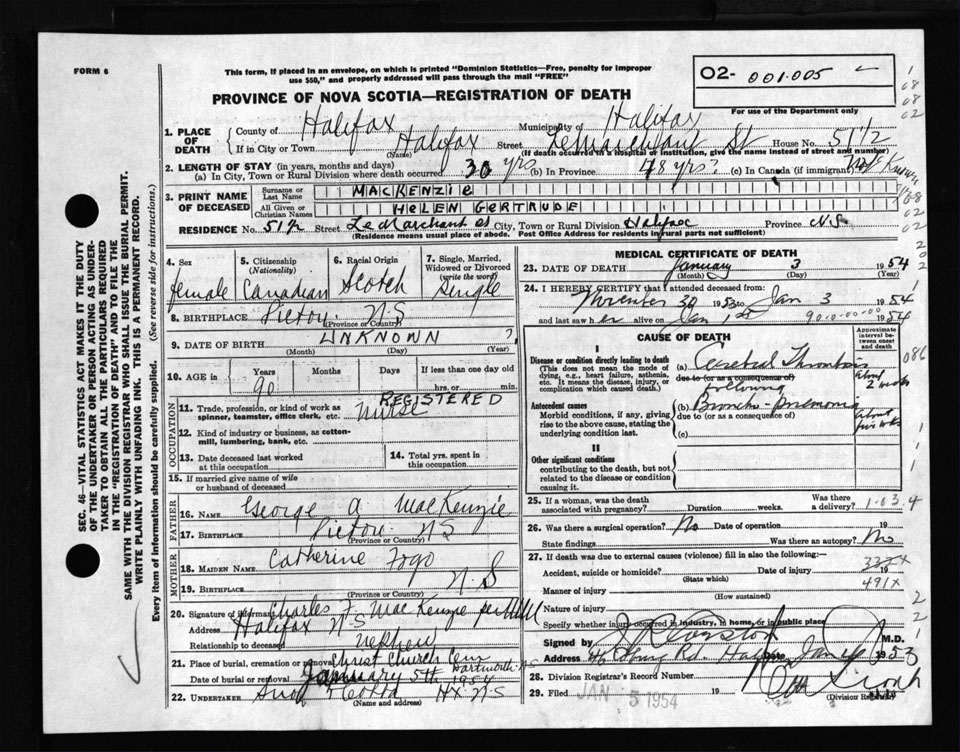 FORM 6
This form, if placed in an envelope, on which is printed "Dominion Statistics—Free, penalty for improper
use $50," and properly addressed will pass through the mail "FREE"
PROVINCE OF NOVA SCOTIA—REGISTRATION OF DEATH
O2- 001.005
For use of the Department only
1. PLACE OF DEATH
County of Halifax Municipality of Halifax
If in City or Town Halifax Street LeMarchant St House No. 51½
(Name) (If death occurred in a hospital or institution, give the name instead of street and number)
2. LENGTH OF STAY (in years, months and days)
(a) In City, Town or Rural Division where death occurred 30 yrs (b) In Province 48 yrs? (c) In Canada (if immigrant) Not Known
3. PRINT NAME OF DECEASED
Surname or Last Name MACKENZIE
All Given or Christian Names HELEN GERTRUDE
RESIDENCE No. 51½ Street Le Marchant St City, Town or Rural Division Halifax Province N.S.
(Residence means usual place of abode. Post Office Address for residents in rural parts not sufficient)
4. Sex female
5. Citizenship (Nationality) Canadian
6. Racial Origin Scotch
7. Single, Married, Widowed or Divorced (write the word) Single
8. BIRTHPLACE Pictou N.S
(Province or Country)
9. DATE OF BIRTH UNKNOWN ?
(Month) (Day) (Year)
10. AGE in Years Months Days If less than one day old
90 hrs. or min.
OCCUPATION
11. Trade, profession, or kind of work as spinner, teamster, office clerk, etc. REGISTERED Nurse
12. Kind of industry or business, as cotton-mill, lumbering, bank, etc.
13. Date deceased last worked at this occupation
14. Total yrs. spent in this occupation
15. If married give name of wife or husband of deceased
FATHER
16. Name George A. MacKenzie
17. BIRTHPLACE Pictou N.S
(Province or Country)
MOTHER
18. MAIDEN NAME Catherine Fogo
19. BIRTHPLACE N.S
(Province or Country)
20. Signature of informant Charles F. MacKenzie per
Address Halifax N.S
Relationship to deceased nephew
21. Place of burial, cremation or removal Christ Church Cem Dartmouth N.S
Date of burial or removal January 5th 1954
22. UNDERTAKER Snow & Co Ltd Hx N.S
(Name and address)
MEDICAL CERTIFICATE OF DEATH
23. DATE OF DEATH January 3 1954
(Month) (Day) (Year)
24. I HEREBY CERTIFY that I attended deceased from:
November 30 1953 to Jan 3 1954
and last saw her alive on Jan 1st 1954
90.0.00.00.0
CAUSE OF DEATH
Approximate interval between onset and death
086
I
Disease or condition directly leading to death
(This does not mean the mode of dying, e.g., heart failure, asthenia, etc. It means the disease, injury, or complication which caused death.)
(a) Cerebral Thrombosis about 2 weeks
due to (or as a consequence of) following
Antecedent causes
Morbid conditions, if any, giving rise to the above cause, stating the underlying condition last.
(b) Broncho-pneumonia about five wks
due to (or as a consequence of)
(c)
II
Other significant conditions
contributing to the death, but not related to the disease or condition causing it.
25. If a woman, was the death associated with pregnancy? Duration weeks. Was there a delivery? 1.03.4
26. Was there a surgical operation? No Date of operation 19
State findings Was there an autopsy? No
27. If death was due to external causes (violence) fill in also the following:
Accident, suicide or homicide? Date of injury 19
(State which)
332X
491X
Manner of injury
(How sustained)
Nature of injury
Specify whether injury occurred in industry, in home, or in public place
Signed by M.D.
Address 46 Coburg Rd. Halifax Jan 4 1953
28. Division Registrar's Record Number
29. Filed JAN 5 1954 19
(Division Registrar)
SEC. 46—VITAL STATISTICS ACT MAKES IT THE DUTY
OF THE UNDERTAKER OR PERSON ACTING AS UNDER-
TAKER TO OBTAIN ALL THE PARTICULARS REQUIRED
IN THE "REGISTRATION OF DEATH" AND TO FILE THE
SAME WITH THE DIVISION REGISTRAR WHO SHALL ISSUE THE BURIAL PERMIT.
WRITE PLAINLY WITH UNFADING INK. THIS IS A PERMANENT RECORD.
Every item of information should be carefully supplied. (See reverse side for instructions.)